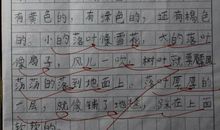 有黄色的，有绿色的，还有褐色
的。小的落叶像雪花，大的落叶
像扇子，风儿一吹，树叶就飘飘
荡荡的落到地面上。落叶厚厚的
一层，就像铺了地毯，踩在上面
软软的